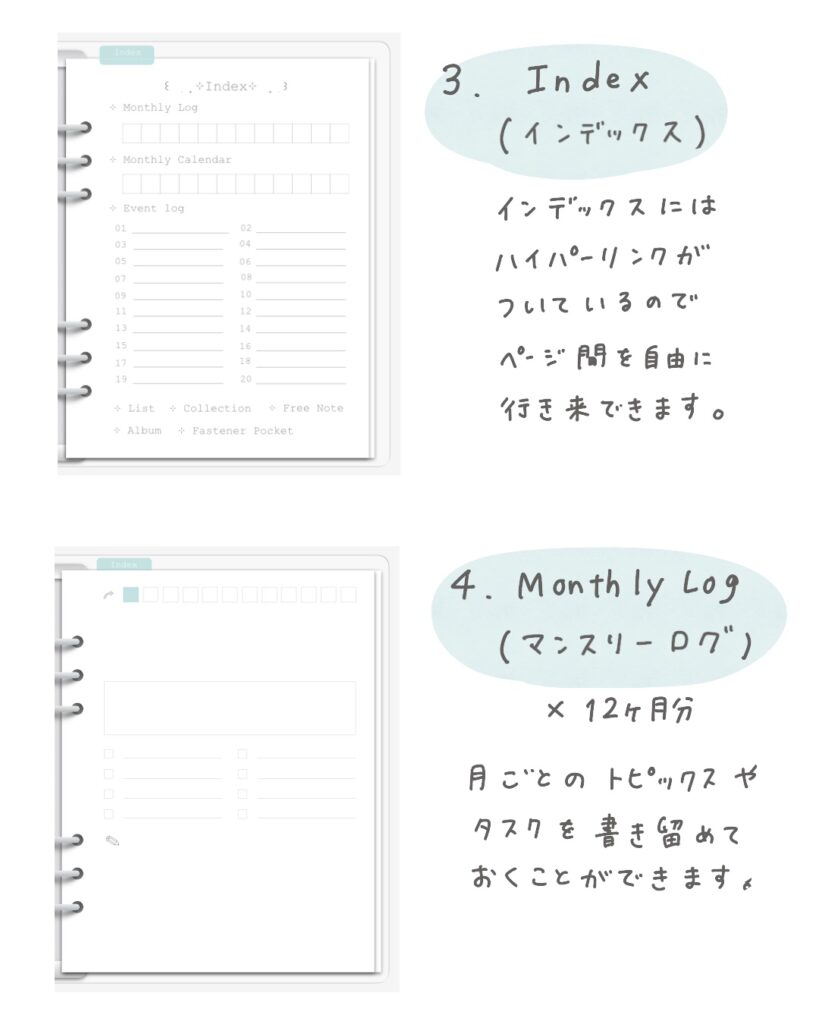 Index
꒰ ⸝⸝⊹Index⊹ ⸝⸝꒱
⊹ Monthly Log
⊹ Monthly Calendar
⊹ Event log
01 02
03 04
05 06
07 08
09 10
11 12
13 14
15 16
17 18
19 20
⊹ List ⊹ Collection ⊹ Free Note
⊹ Album ⊹ Fastener Pocket
3. Index
(インデックス)
インデックスには
ハイパーリンクが
ついているので
ページ間を自由に
行き来できます。
Index
4. Monthly Log
(マンスリーログ)
× 12ヶ月分
月ごとのトピックスや
タスクを書き留めて
おくことができます。